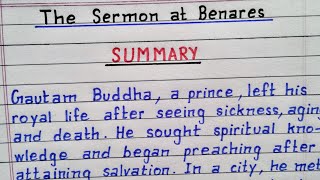 The Sermon at Benares
SUMMARY
Gautam Buddha, a prince, left his
royal life after seeing sickness, aging
and death. He sought spiritual kno-
wledge and began preaching after
attaining salvation. In a city, he met